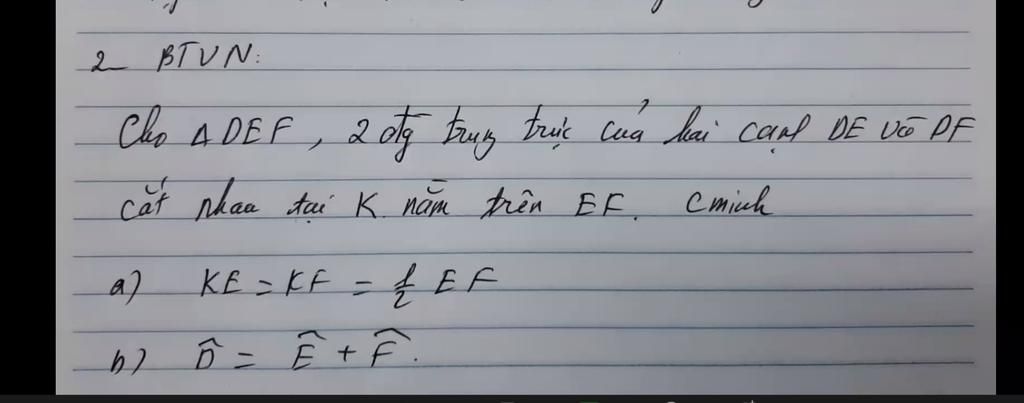 2 BTVN:
Cho Δ DEF, 2 đg trung trực của hai cạnh DE và DF
cắt nhau tại K nằm trên EF. Cminh
a) KE = KF = 1/2 EF
b) D̂ = Ê + F̂.